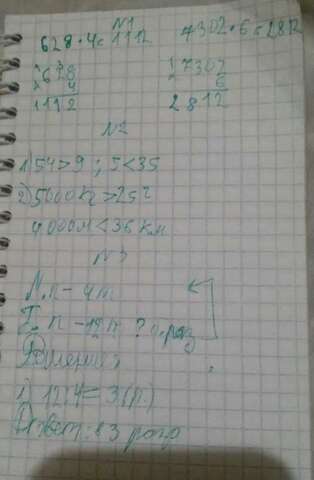 N1
628·4=1112
7302·6=2812
628
×
4
1112
7302
×
6
2812
N2
1) 54>9 ; 5<35
2) 5000 кг >25 г
4000м<36 км
N3
Л.п - 4 т
- 12 п ? в. раз
1) 12:4= 3 (р.)
Ответ: в 3 раза